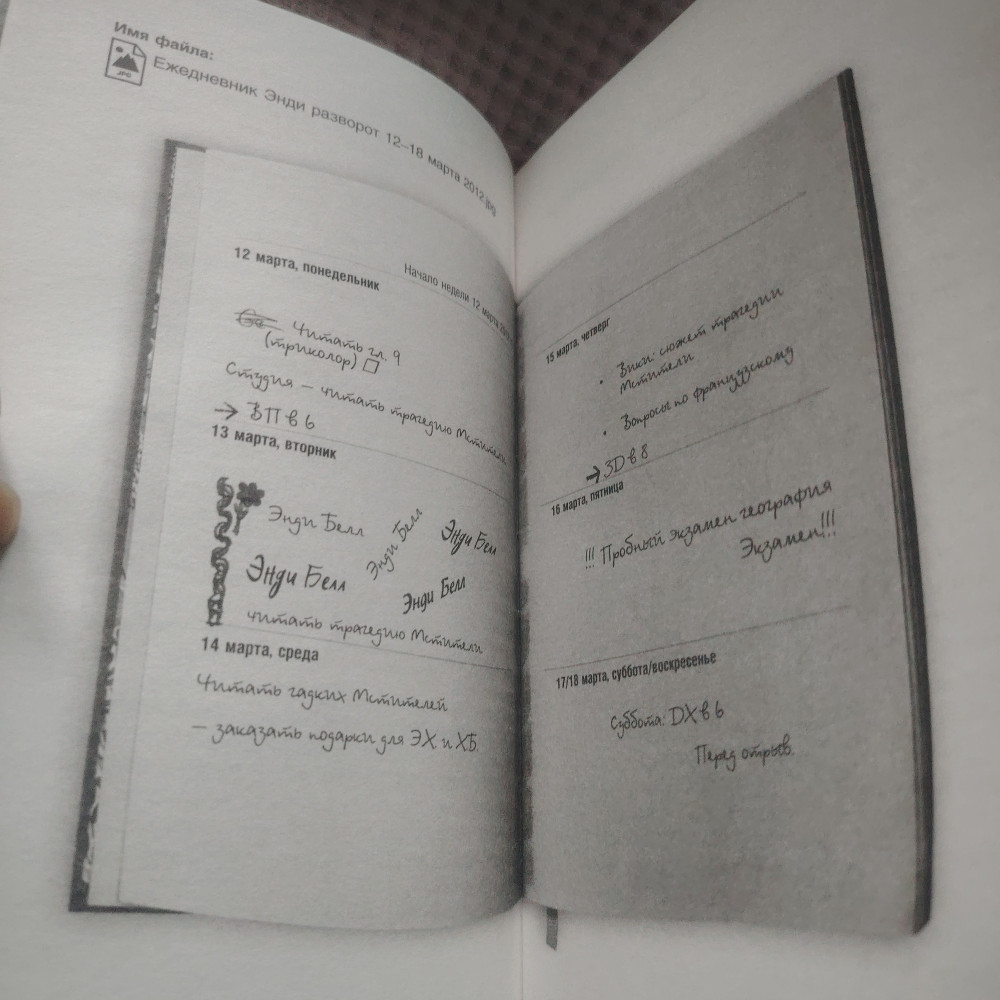 Имя файла:
JPG
Ежедневник Энди разворот 12–18 марта 2012.jpg
Начало недели 12 марта
12 марта, понедельник
Читать гл. 9
(триколор)
Студия – читать трагедию Мстители
→ ВП в 6
13 марта, вторник
Энди Белл
Энди Белл
Энди Белл
Энди Белл
Энди Белл
читать трагедию Мстители
14 марта, среда
Читать гадких Мстителей
– заказать подарки для ЭХ и ХБ.
15 марта, четверг
• Вики: сюжет трагедии
Мстители
• Вопросы по французскому
→ 3D в 8
16 марта, пятница
!!! Пробный экзамен география
Экзамен!!!
17/18 марта, суббота/воскресенье
Суббота: DX в 6
Перед отрыв.